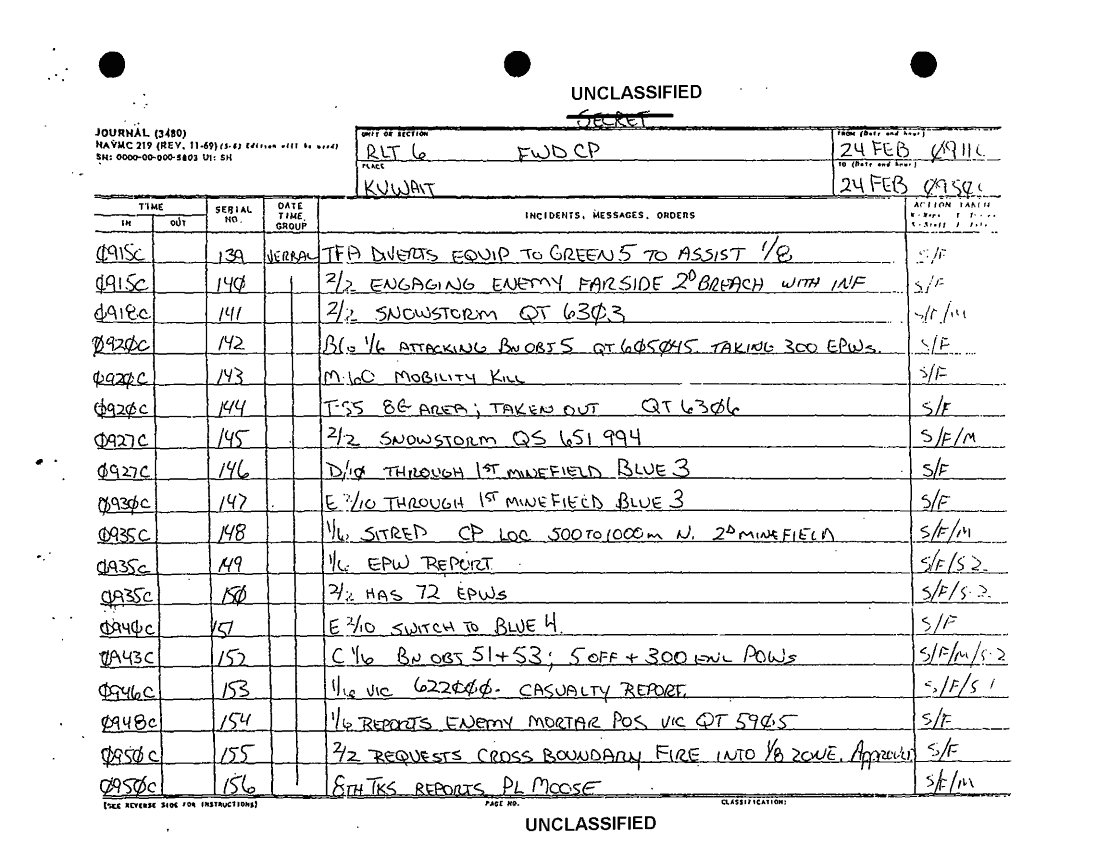 UNCLASSIFIED
SECRET
JOURNAL (3480)
NAVMC 219 (REV. 11-69) (5-68 Edition will be used)
SN: 0000-00-000-5803 UI: SH
UNIT OR SECTION
RLT 6 FWD CP
FROM (Date and hour)
24 FEB 0911C
PLACE
KUWAIT
TO (Date and hour)
24 FEB 0950C
TIME
IN OUT
SERIAL NO.
DATE TIME GROUP
INCIDENTS, MESSAGES, ORDERS
ACTION TAKEN
0915C 139 VERBAL TFA DIVERTS EQUIP TO GREEN 5 TO ASSIST 1/8 S/F
0915C 140 2/2 ENGAGING ENEMY FARSIDE 2D BREACH WITH INF S/F
0918C 141 2/2 SNOWSTORM QT 6303 S/F/M
0920C 142 B Co 1/6 ATTACKING BN OBJ 5 QT 605045. TAKING 300 EPWS. S/F
0920C 143 M-60 MOBILITY KILL S/F
0920C 144 T-55 8G AREA; TAKEN OUT QT 6306 S/F
0927C 145 2/2 SNOWSTORM QS 651 994 S/F/M
0927C 146 D/10 THROUGH 1ST MINEFIELD BLUE 3 S/F
0930C 147 E 2/10 THROUGH 1ST MINEFIELD BLUE 3 S/F
0935C 148 1/6 SITREP CP LOC 500 TO 1000m N. 2D MINEFIELD S/F/M
0935C 149 1/6 EPW REPORT S/F/S-2
0935C 150 2/2 HAS 72 EPWS S/F/S-2
0940C 151 E 2/10 SWITCH TO BLUE 4. S/F
0943C 152 C 1/6 BN OBJ 51+53; 5 OFF + 300 ENL POWs S/F/M/S-2
0946C 153 1/6 VIC 622000. CASUALTY REPORT. S/F/S-1
0948C 154 1/6 REPORTS ENEMY MORTAR POS VIC QT 5905 S/F
0950C 155 2/2 REQUESTS CROSS BOUNDARY FIRE INTO 1/8 ZONE. Approved S/F
0950C 156 8TH TKS REPORTS PL MOOSE S/F/M
(SEE REVERSE SIDE FOR INSTRUCTIONS) PAGE NO. CLASSIFICATION:
UNCLASSIFIED